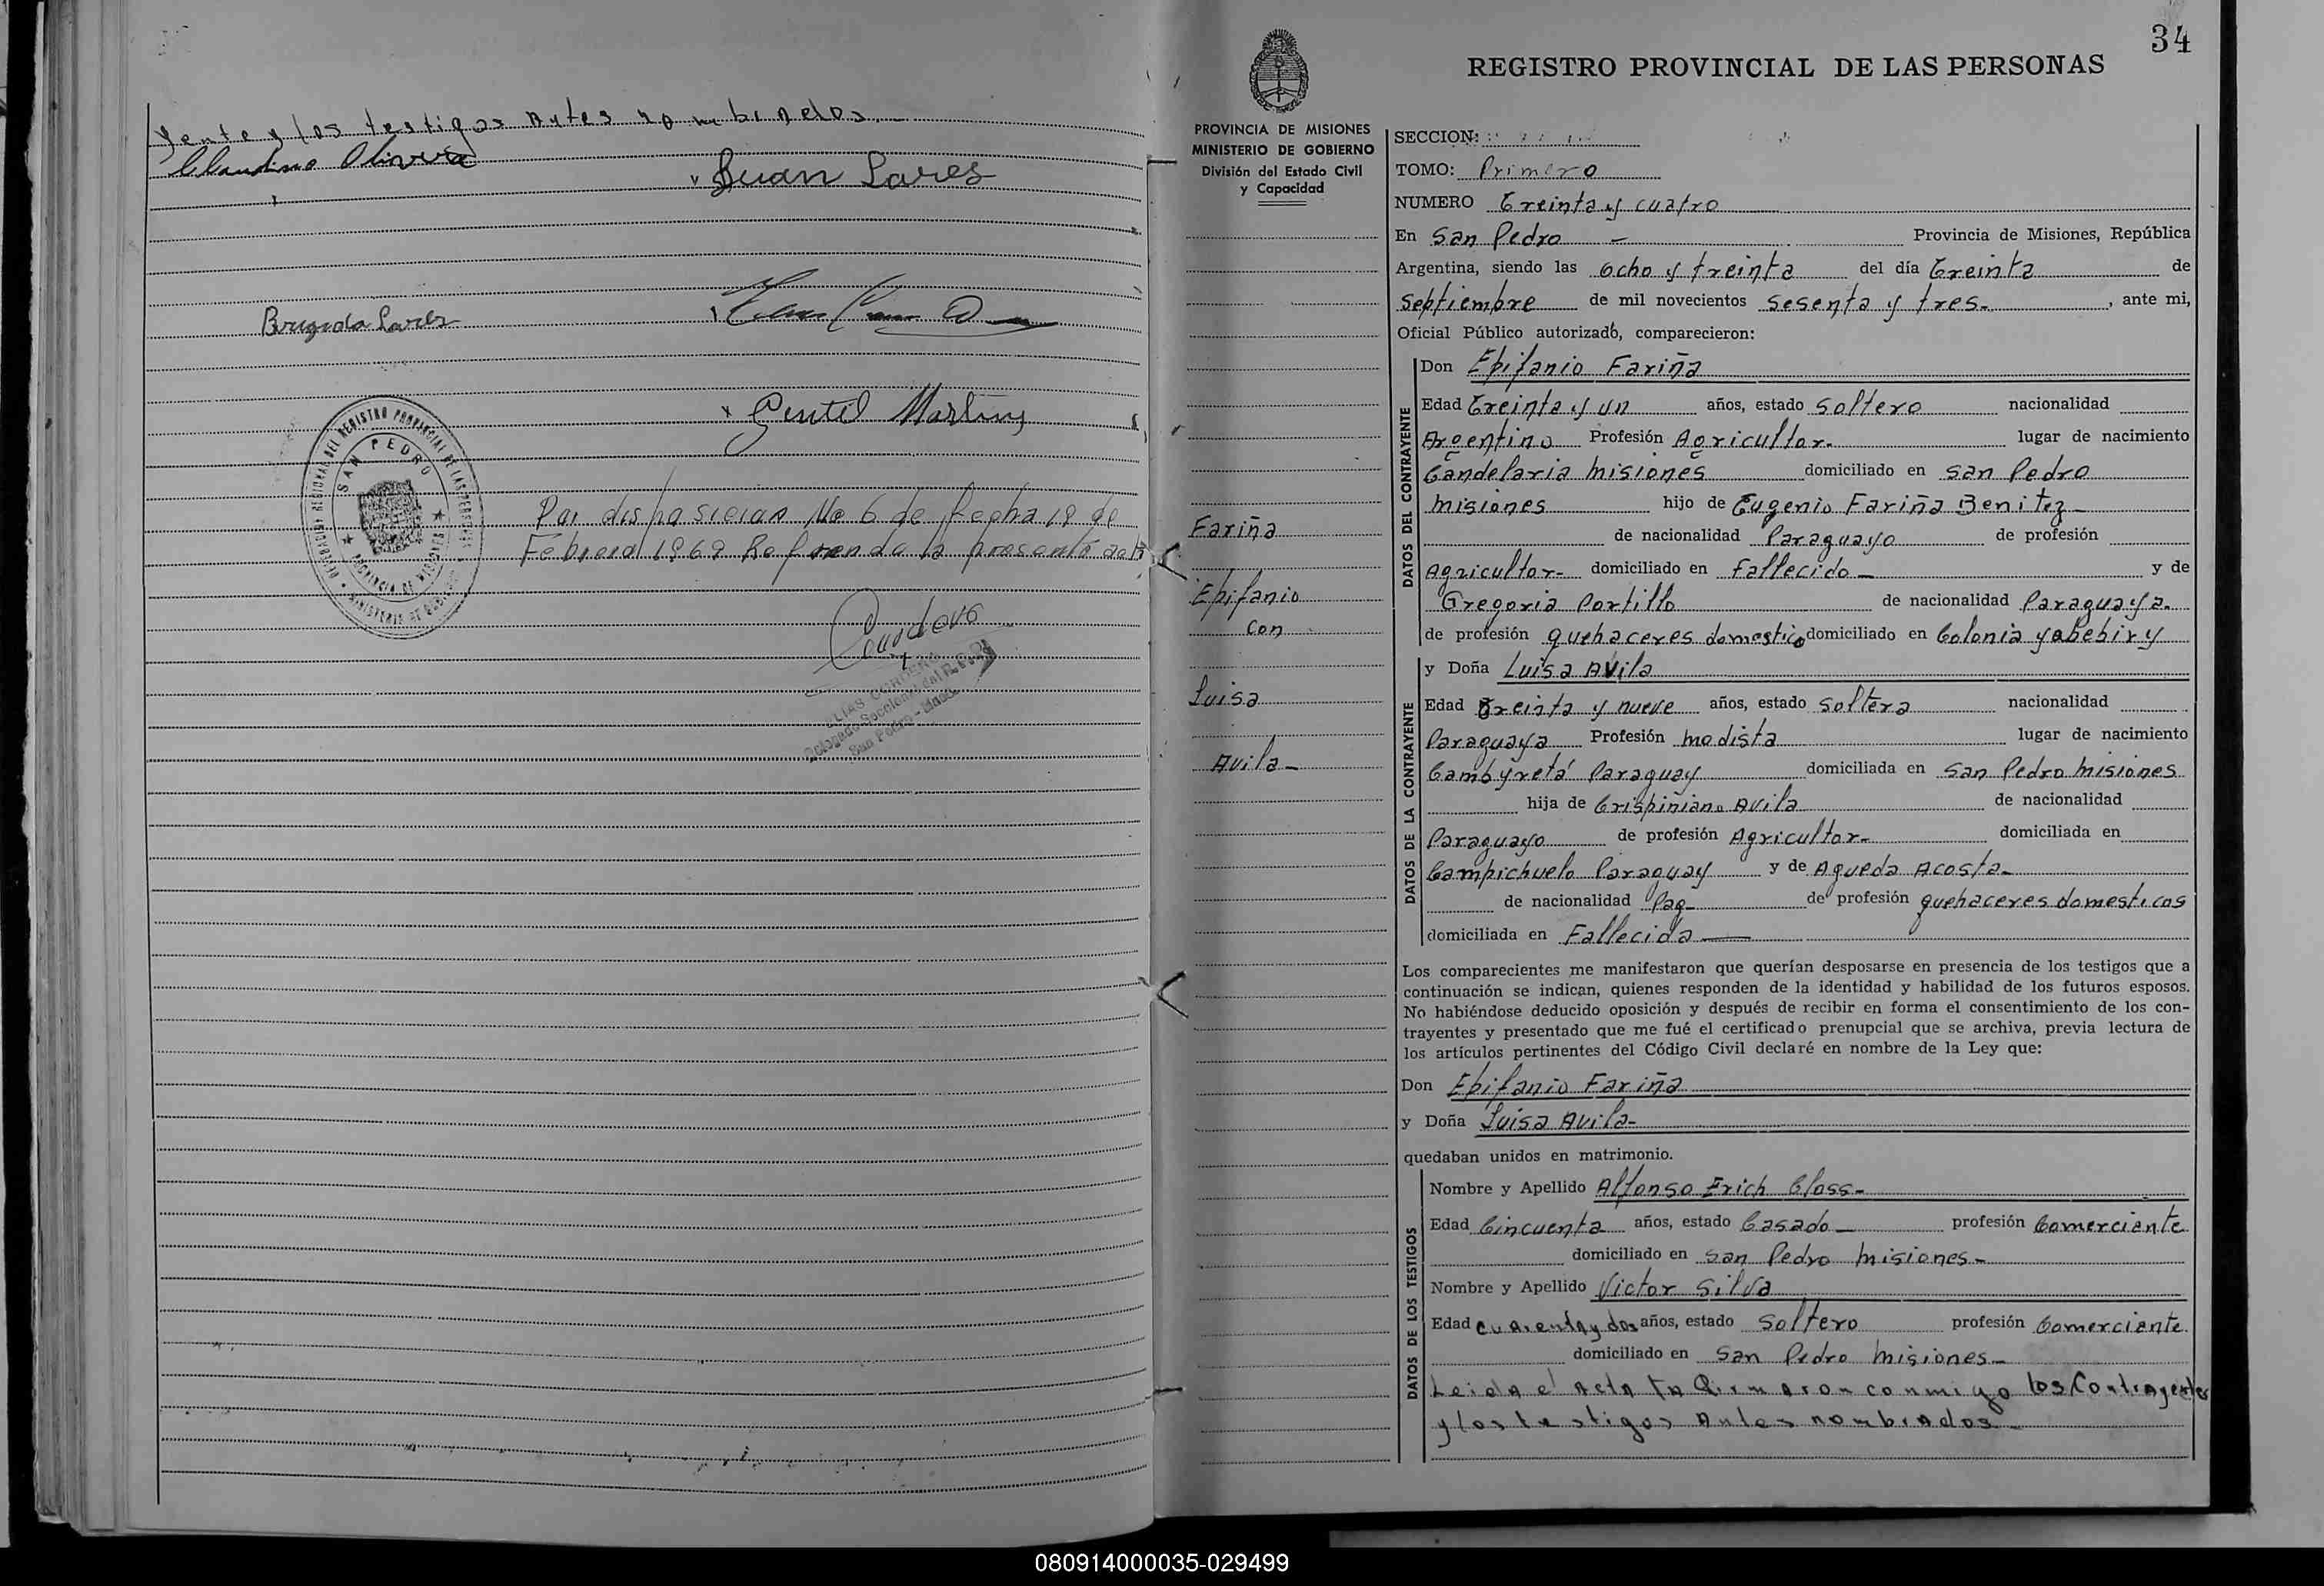 yente y los testigos Antes nombrados.-
Claudino Olivera
Juan Lares
Brigida Lares
Gentil Martins
REGISTRO PROVINCIAL DE LAS PERSONAS
SAN PEDRO
PROVINCIA DE MISIONES
MINISTERIO DE GOBIERNO
Por disposicion No 6 de fecha 19 de
Febrero 1969 Refrenda la presente acta
San Pedro - Mnes.
34
REGISTRO PROVINCIAL DE LAS PERSONAS
PROVINCIA DE MISIONES
MINISTERIO DE GOBIERNO
División del Estado Civil
y Capacidad
Fariña
Epifanio
con
Luisa
Avila-
SECCION:
TOMO: Primero
NUMERO Treinta y cuatro
En San Pedro - Provincia de Misiones, República
Argentina, siendo las Ocho y treinta del día Treinta de
Septiembre de mil novecientos sesenta y tres-, ante mi,
Oficial Público autorizado, comparecieron:
DATOS DEL CONTRAYENTE
Don Epifanio Fariña
Edad Treinta y un años, estado soltero nacionalidad
Argentino Profesión Agricultor- lugar de nacimiento
Candelaria misiones domiciliado en San Pedro
misiones hijo de Eugenio Fariña Benitez-
de nacionalidad Paraguayo de profesión
Agricultor- domiciliado en Fallecido- y de
Gregoria Portillo de nacionalidad Paraguaya-
de profesión quehaceres domestico domiciliado en Colonia yabebiry
DATOS DE LA CONTRAYENTE
y Doña Luisa Avila
Edad Treinta y nueve años, estado soltera nacionalidad
Paraguaya Profesión modista lugar de nacimiento
Cambyretá Paraguay domiciliada en San Pedro misiones
hija de Crispiniano Avila de nacionalidad
Paraguayo de profesión Agricultor- domiciliada en
Campichuelo Paraguay y de Agueda Acosta-
de nacionalidad Pag- de profesión quehaceres domesticos
domiciliada en Fallecida-
Los comparecientes me manifestaron que querían desposarse en presencia de los testigos que a
continuación se indican, quienes responden de la identidad y habilidad de los futuros esposos.
No habiéndose deducido oposición y después de recibir en forma el consentimiento de los con-
trayentes y presentado que me fué el certificado prenupcial que se archiva, previa lectura de
los artículos pertinentes del Código Civil declaré en nombre de la Ley que:
Don Epifanio Fariña
y Doña Luisa Avila-
quedaban unidos en matrimonio.
DATOS DE LOS TESTIGOS
Nombre y Apellido Alfonso Erich Closs-
Edad Cincuenta años, estado Casado- profesión Comerciante
domiciliado en San Pedro misiones-
Nombre y Apellido Victor Silva
Edad cuarenta y dos años, estado Soltero profesión Comerciante
domiciliado en San Pedro misiones-
Leida el Acta la firmaron conmigo los Contrayentes
y los testigos Antes nombrados-
080914000035-029499